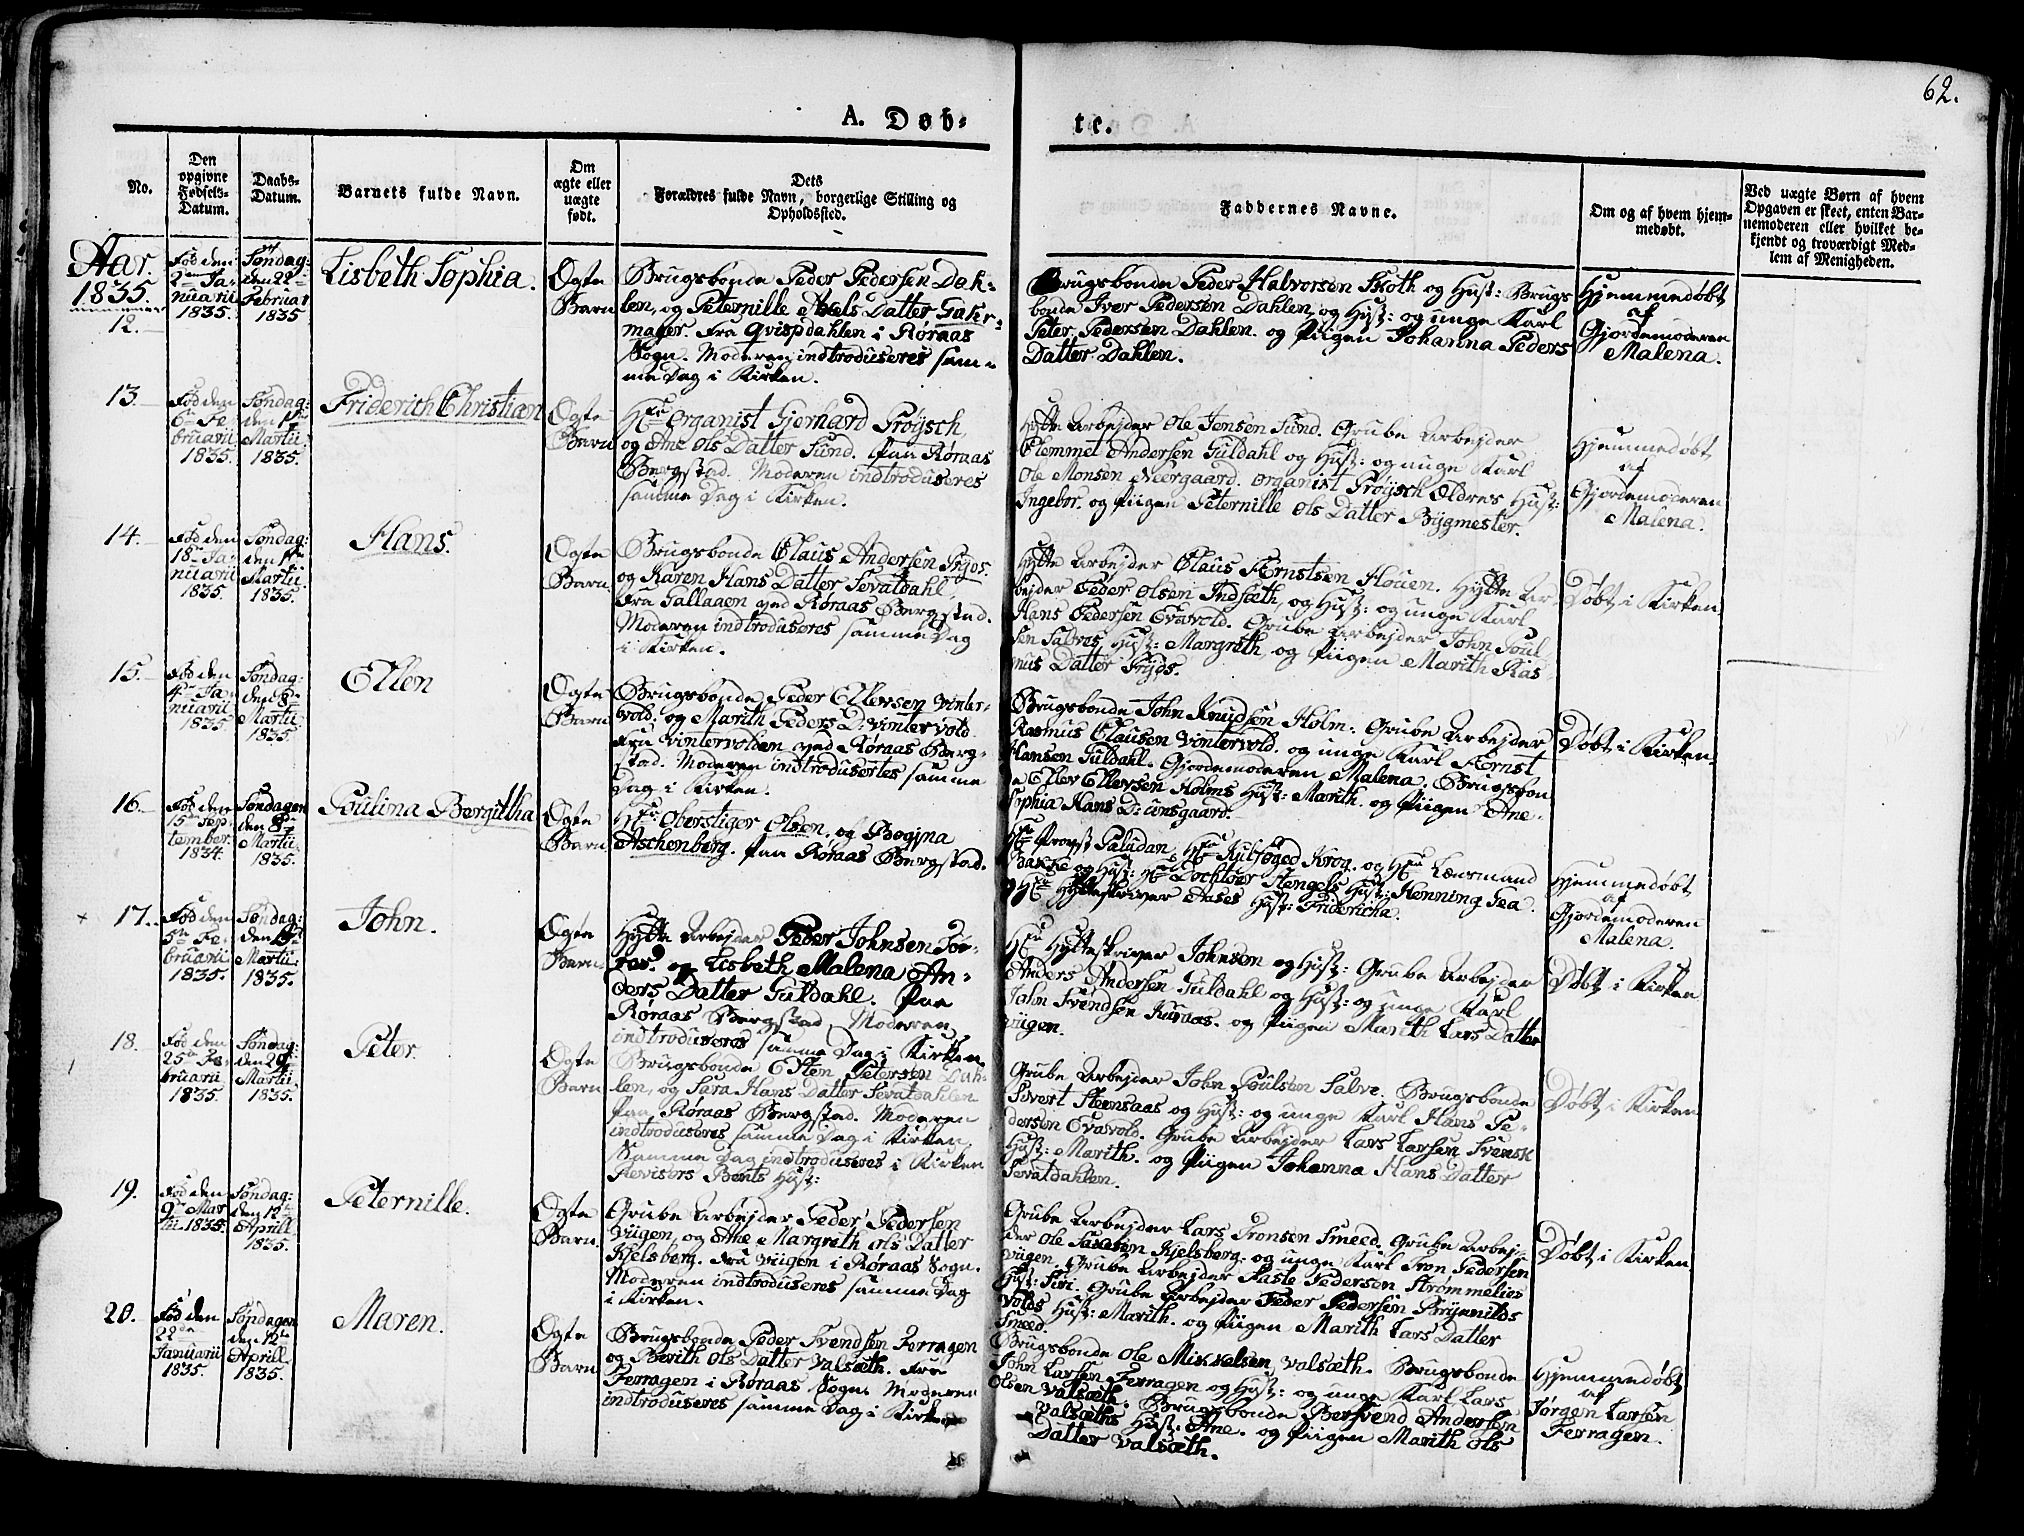 62.
A. Døb-
te.
No.
Den opgivne Fødsels-Datum.
Daabs-Datum.
Barnets fulde Navn.
Om ægte eller uægte født.
Dets
Forældres fulde Navn, borgerlige Stilling og
Opholdssted.
Faddernes Navne.
Om og af hvem hjem-
medøbt.
Ved uægte Børn af hvem
Opgaven er skeet, enten Bar-
nemoderen eller hvilket be-
kjendt og troværdigt Med-
lem af Menigheden.
Aar.
1835.
12.
Fød den
2en Ja-
nuarii
1835.
Søndag:
den 22
Februar
1835
Lisbeth Sophia.
Ægte
Barn
Brugsbonde Peder Pedersen Dah-
len, og Peternille Axels Datter
mager. Fra Qvispdahlen i Røraas
Sogn. Moderen indtroduseres sam-
me Dag i Kirken.
Brugsbonde Peder Halvorsen Skoth og Hust: Brugs
bonde Iver Pedersen Dahlen, og Hust: og unge Karl
Peter Pedersen Dahlen. og Piigen Johanna Peders
Datter Dahlen.
Hjemmedøbt
af
Gjordemoderen
Malena.
13.
Fød den
6n Fe-
bruarii
1835.
Søndag:
den 1ste
Martii
1835.
Friderich Christian
Ægte
Barn
Hr Organist Gjerhard Prøysch
og Ane Ols Datter Sund. Paa Røraas
Bergstad. Moderen indtroduseres
samme Dag i Kirken.
Hytte Arbejder Ole Jensen Sund. Grube Arbejder
Clemmet Andersen Guldahl og Hust: og unge Karl
Ole Monsen Neergaard. Organist Prøysch Ældres Hust:
Ingebor. og Piigen Peternille Ols Datter Bygmester.
Hjemmedøbt
af
Gjordemoderen
Malena.
14.
Fød den
18n Ja-
nuarii
1835.
Søndag:
den 1ste
Martii.
1835.
Hans.
Ægte
Barn
Brugsbonde Claus Andersen Tryds.
og Karen Hans Datter Sevatdahl.
Fra Gallaaen ved Røraas Bergstad.
Moderen indtroduseres samme Dag
i Kirken.
Hytte Arbejder Claus Ernstsen Houen. Hytte Ar-
bejder Peder Olsen Indsæth, og Hust: og unge Karl
Hans Pedersen Evavold. Grube Arbejder John Poul
sen Salves Hust: Margreth, og Piigen Marith Ras-
mus Datter Tryds.
Døbt i Kirken
15.
Fød den
4n Ja-
nuarii
1835.
Søndag:
den 8n
Martii
1835.
Ellen
Ægte
Barn
Brugsbonde Peder Ellevsen Vinter-
vold. og Marith Peders D: Vintervold
Fra Vintervolden ved Røraas Berg-
stad. Moderen indtroduseres samme
Dag i Kirken.
Brugsbonde John Knudsen Holm. Grube Arbejder
Rasmus Clausen Vintervold. og unge Karl Ernst
Hansen Guldahl. Gjordemoderen Malena. Brugsbon
de Ellev Ellevsen Holms Hust: Marith. og Piigen Ane-
Sophia Hans D:
Døbt i Kirken.
16.
Fød den
15n Sep-
tember
1834.
Søndagen
den 8n
Martii
1835.
Poulina Bergitha
Ægte
Barn
Hr: Oberstiger Olsen. og
Aschenberg. Paa Røraas Bergstad.
Hr Provst Paludan, Hr Kulfoged Krog. og Hr Lænsmand
Bakke og Hust: Hr Docktoer Hengels Hust: Henning Gea.
og Hr Hytteskriver Aases Hust: Fridericha.
Hjemmedøbt
af
Gjordemoderen
Malena.
+
17.
Fød den
5n Fe-
bruarii
1835.
Søndag:
den 15
Martii
1835.
John.
Ægte
Barn
Hytte Arbejder Peder Johnsen
og Lisbeth Malena An-
ders Datter Guldahl. Paa
Røraas Bergstad. Moderen
indtroduseres samme Dag i Kirken
Hr Hytteskriver Johnsen og Hust: Grube Arbejder
Anders Andersen Guldahl og Hust: og unge Karl
John Svendsen Kuraas. og Piigen Marith Lars Datter
Viigen.
Døbt i Kirken
18.
Fød den
25n Fe-
bruarii
1835.
Søndag
den 29
Martii
1835.
Peter
Ægte
Barn
Brugsbonde Esten Petersen Dah-
len, og Sara Hans Datter Sevatdahlen
Paa Røraas Bergstad. Moderen
indtroduseres samme Dag i Kirken.
Samme Dag indtroduseres i Kirken
Revisors Bents Hust:
Grube Arbejder John Poulsen Salve. Brugsbonde
Sivert Steensaas og Hust: og unge Karl Hans Pe-
dersen Evavold. Grube Arbejder Lars Larsen Svensk
Hust: Marith. og Piigen Johanna Hans Datter
Sevatdahlen.
Døbt i Kirken
19.
Fød den
9n Mar
tii 1835.
Søndag:
den 12te
Aprill
1835.
Peternille.
Ægte
Barn.
Grube Arbejder Peder Pedersen
Viigen, og Ane Margreth Ols Datter
Kjelsberg. Fra Viigen i Røraas Sogn.
Moderen indtroduseres samme Dag
i Kirken.
Grube Arbejder Lars Tronsen Smeed. Grube Arbej-
der Ole Kjelsberg. og unge Karl Tron Pedersen
Viigen. Grube Arbejder Paste Pedersen
Hust: Siri. Grube Arbejder Peder Pedersen Brynnilds
volds Hust: Marith. og Piigen Marith Lars Datter
Smeed.
Døbt i Kirken
20.
Fød den
22de
Januarii
1835.
Søndagen
den 12te
Aprill
1835.
Maren.
Ægte
Barn
Brugsbonde Peder Svendsen Ferragen
og Berith Ols Datter Valsæth. Fra
Ferragen i Røraas Sogn. Moderen
indtroduseres samme Dag i Kirken
Brugsbonde Ole Mikkelsen Valsæth. Brugsbonde
John Larsen Ferragen og Hust: og unge Karl Lars
Olsen Valsæth. Brugsbonde Bersvend Andersen
Valsæths Hust: Ane. og Piigen Marith Ols
Datter Valsæth.
Hjemmedøbt
af
Jørgen Larsen
Ferragen.